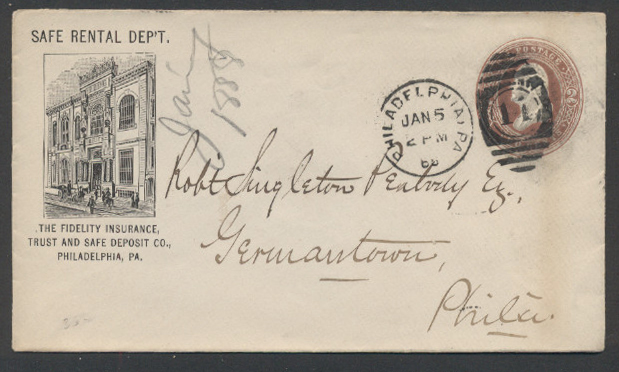 SAFE RENTAL DEP'T.
Jan'y
1888
POSTAGE
PHILADELPHIA, PA
JAN 5
2 PM
88
THE FIDELITY INSURANCE,
TRUST AND SAFE DEPOSIT CO.,
PHILADELPHIA, PA.
Robt Singleton Peabody Eq.,
Germantown,
Phila.